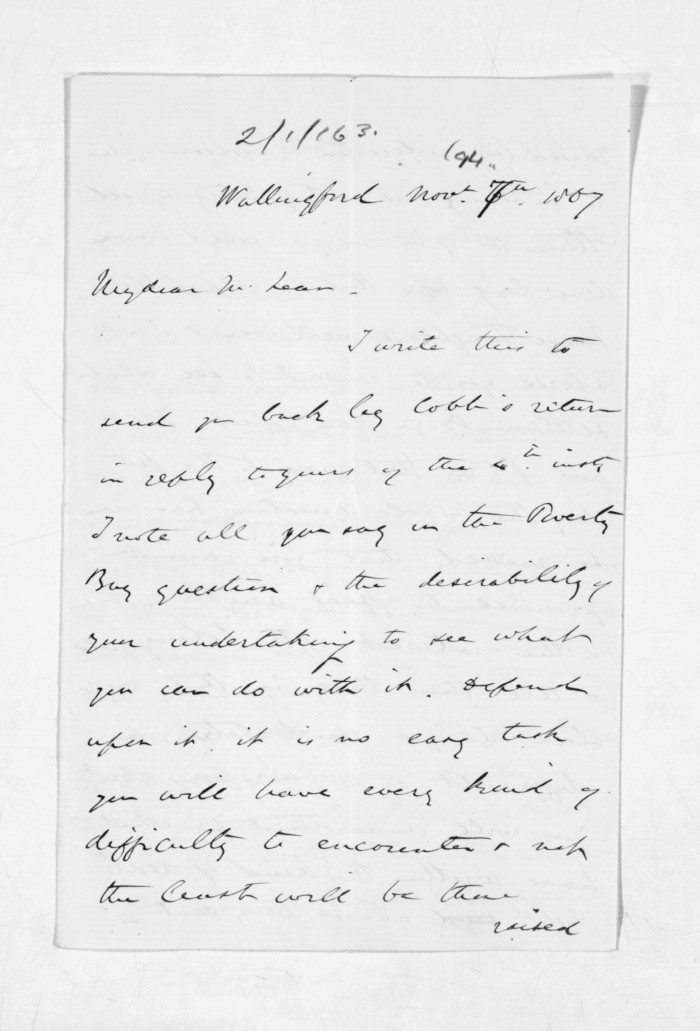 2/1/163.
194.
Wallingford Novr. 7th. 1867
My dear McLean -
I write this to
send you back by Cobb's return
in reply to yours of the 4th. inst,
I note all you say on the Poverty
Bay question & the desirability of
your undertaking to see what
you can do with it. Depend
upon it, it is no easy task
you will have every kind of
difficulty to encounter & not
the least will be those
raised